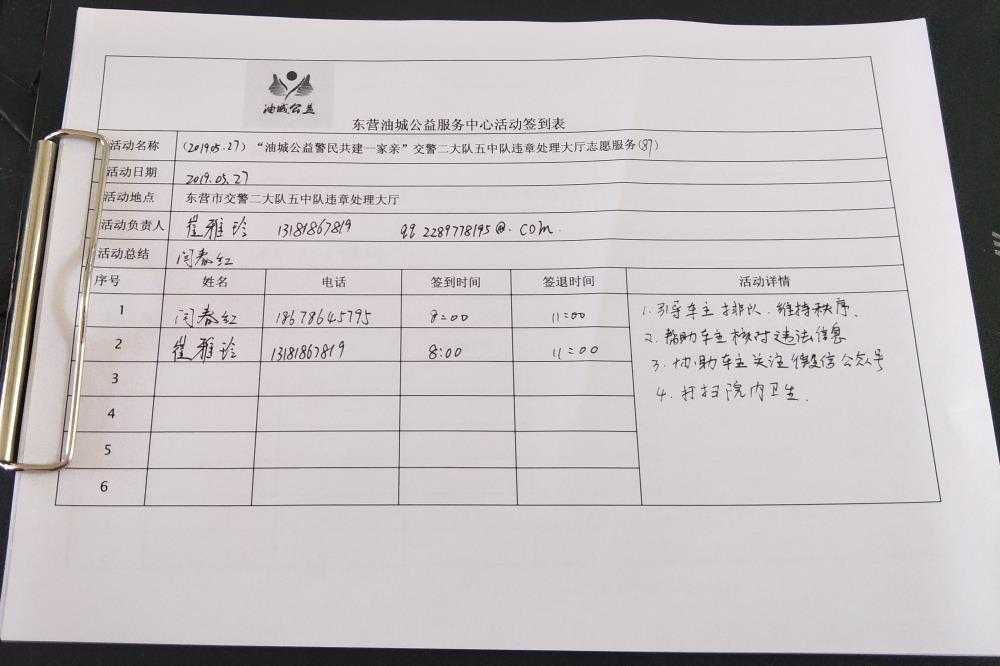 油城公益
东营油城公益服务中心活动签到表
活动名称 （2019.05.27）“油城公益警民共建一家亲”交警二大队五中队违章处理大厅志愿服务（87）
活动日期 2019.05.27
活动地点 东营市交警二大队五中队违章处理大厅
活动负责人 崔雅玲 13181867819 qq 2289778195@.com.
活动总结 闫春红
序号 姓名 电话 签到时间 签退时间 活动详情
1 闫春红 18678645795 8:00 11:00
2 崔雅玲 13181867819 8:00 11:00
3
4
5
6
1.引导车主排队.维持秩序.
2.帮助车主核对违法信息
3.协助车主关注微信公众号
4.打扫院内卫生.